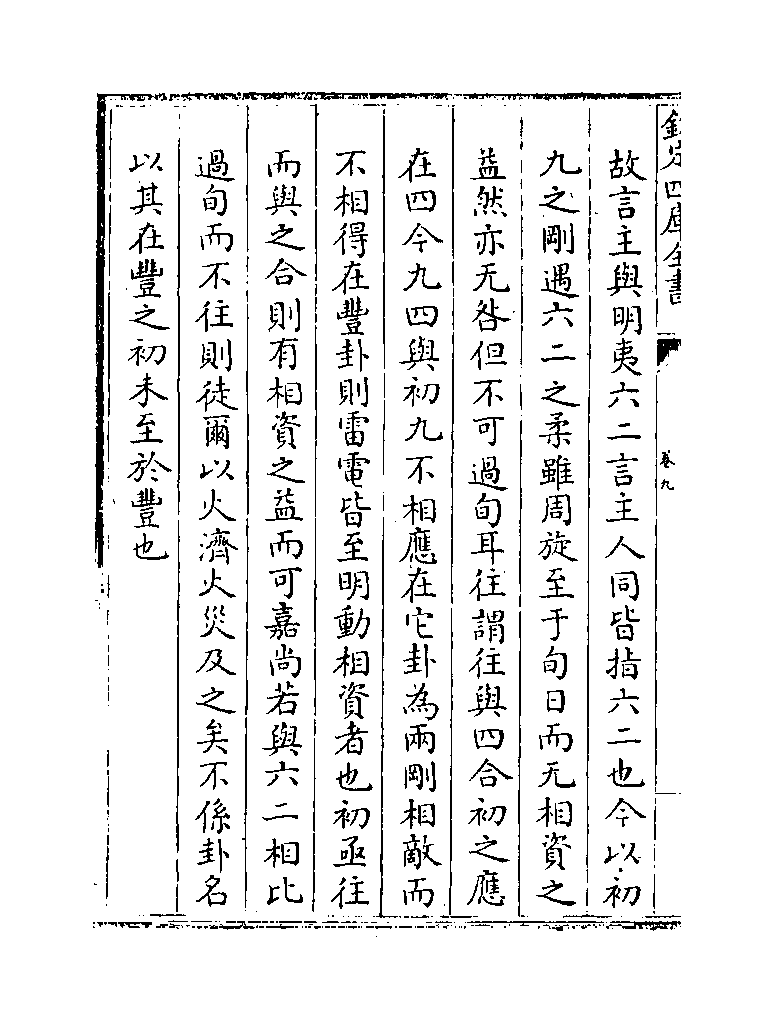 欽定四庫全書
卷九
故言主與明夷六二言主人同皆指六二也今以初
九之剛遇六二之柔雖周旋至于旬日而无相資之
益然亦无咎但不可過旬耳往謂往與四合初之應
在四今九四與初九不相應在它卦為兩剛相敵而
不相得在豐卦則雷電皆至明動相資者也初亟往
而與之合則有相資之益而可嘉尚若與六二相比
過旬而不往則徒爾以火濟火災及之矣不係卦名
以其在豐之初未至於豐也